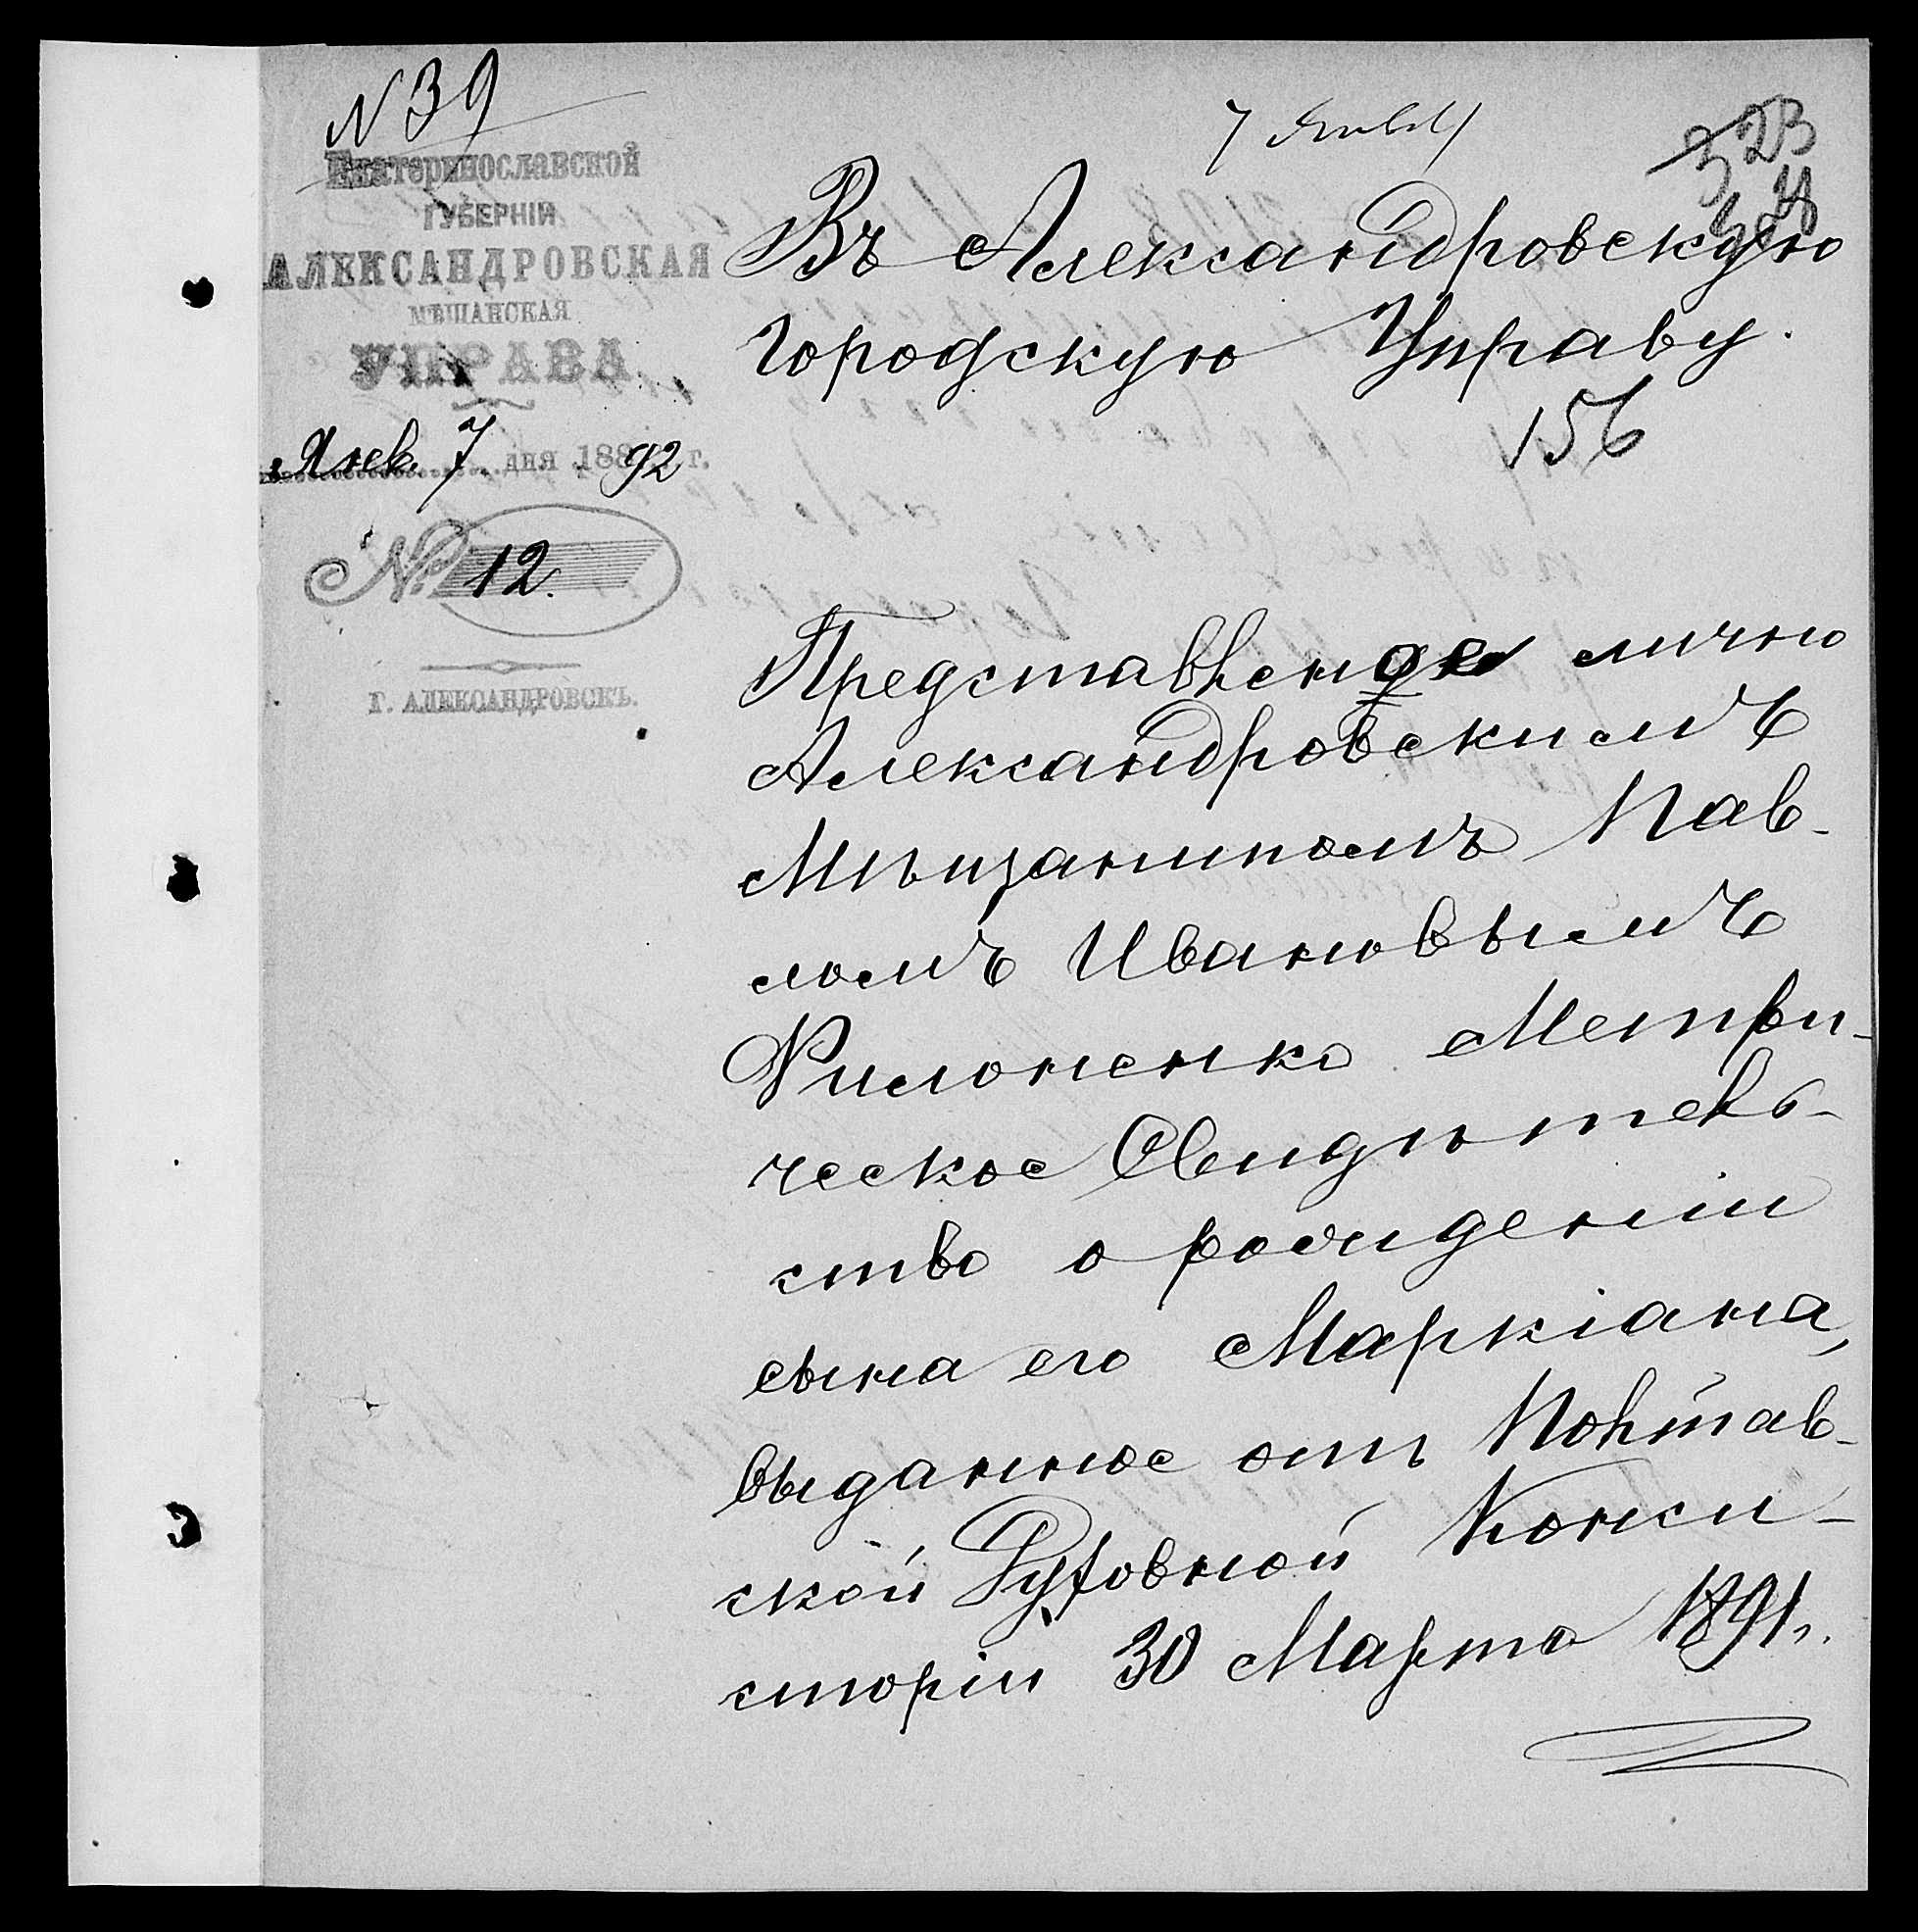 N 39
Екатеринославской
ГУБЕРНІИ
АЛЕКСАНДРОВСКАЯ
МѢЩАНСКАЯ
УПРАВА
Янв. 7 дня 1892 г.
№ 12.
Г. АЛЕКСАНДРОВСКЪ.
7 Янв
323
Въ Александровскую
Городскую Управу.
156
Представленное лично
Александровскимъ
Мѣщаниномъ Пав-
ломъ Ивановымъ
Филоненко Метри-
ческое Свидѣтель-
ство о рожденіи
сына его Маркіана,
выданное отъ Полтав-
ской Духовной Конси-
сторіи 30 Марта 1891 г.